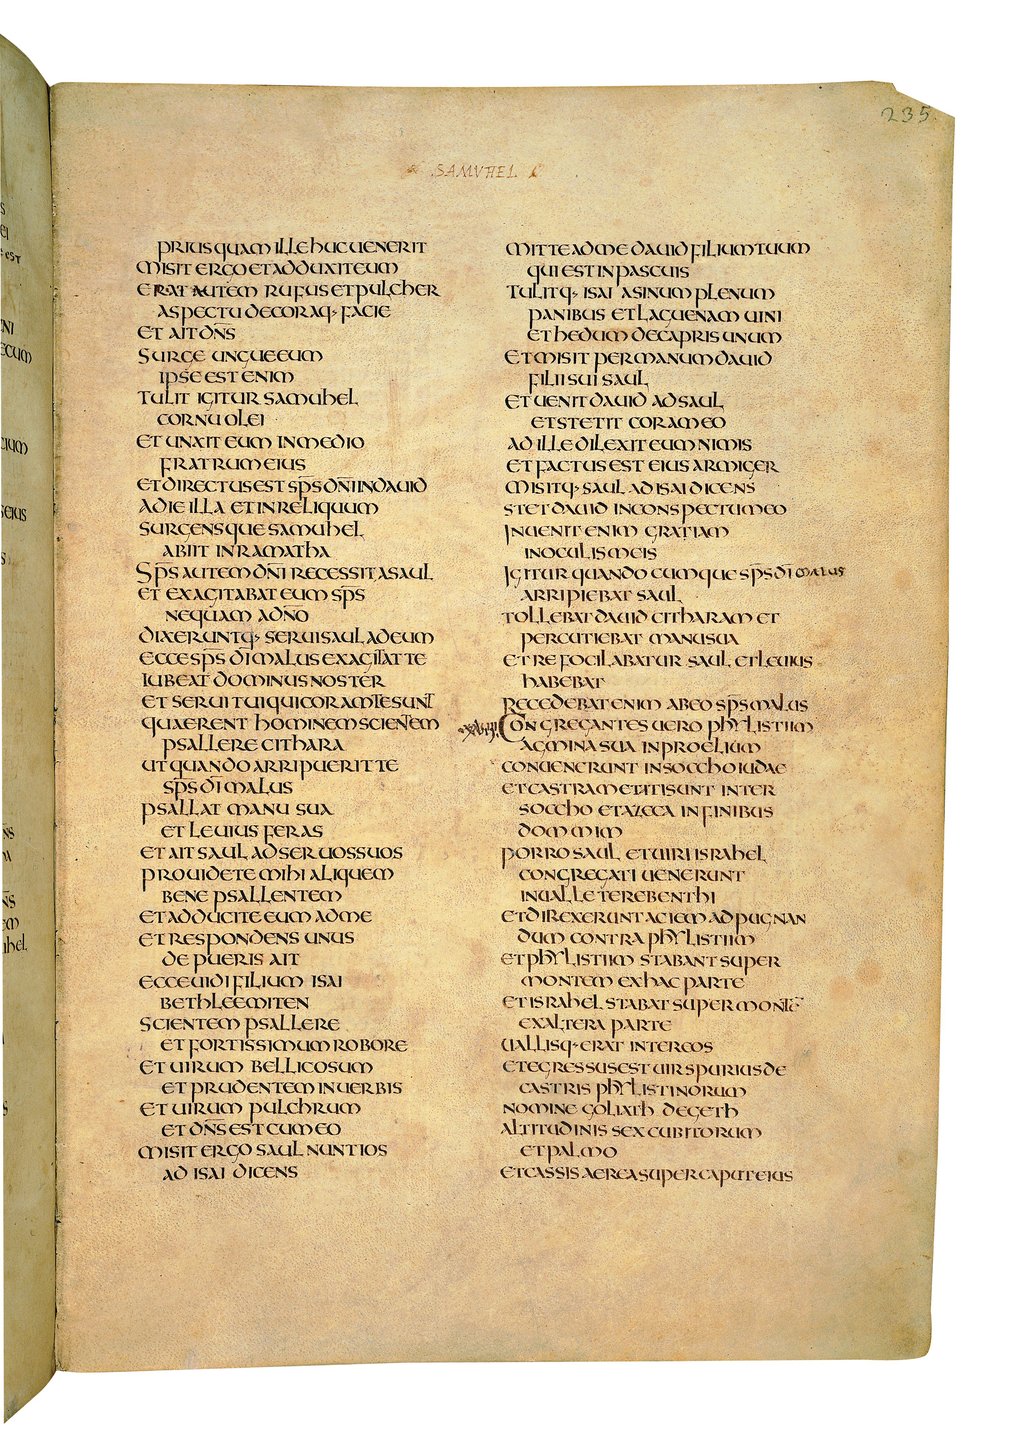 235
SAMUHEL
PRIUSQUAM ILLE HUC UENERIT
MISIT ERGO ET ADDUXIT EUM
ERAT AUTEM RUFUS ET PULCHER
ASPECTU DECORAQ· FACIE
ET AIT DN̄S
SURGE UNGUE EUM
IPSE EST ENIM
TULIT IGITUR SAMUHEL
CORNU OLEI
ET UNXIT EUM IN MEDIO
FRATRUM EIUS
ET DIRECTUS EST SP̄S DN̄I IN DAUID
A DIE ILLA ET IN RELIQUUM
SURGENSQUE SAMUHEL
ABIIT IN RAMATHA
SP̄S AUTEM DN̄I RECESSIT A SAUL
ET EXAGITABAT EUM SP̄S
NEQUAM A DN̄O
DIXERUNTQ· SERUI SAUL AD EUM
ECCE SP̄S DĪ MALUS EXAGITAT TE
IUBEAT DOMINUS NOSTER
ET SERUI TUI QUI CORAM TE SUNT
QUAERENT HOMINEM SCIENTEM
PSALLERE CITHARA
UT QUANDO ARRIPUERIT TE
SP̄S DĪ MALUS
PSALLAT MANU SUA
ET LEUIUS FERAS
ET AIT SAUL AD SERUOS SUOS
PROUIDETE MIHI ALIQUEM
BENE PSALLENTEM
ET ADDUCITE EUM AD ME
ET RESPONDENS UNUS
DE PUERIS AIT
ECCE UIDI FILIUM ISAI
BETHLEEMITEN
SCIENTEM PSALLERE
ET FORTISSIMUM ROBORE
ET UIRUM BELLICOSUM
ET PRUDENTEM IN UERBIS
ET UIRUM PULCHRUM
ET DN̄S EST CUM EO
MISIT ERGO SAUL NUNTIOS
AD ISAI DICENS
MITTE AD ME DAUID FILIUM TUUM
QUI EST IN PASCUIS
TULITQ· ISAI ASINUM PLENUM
PANIBUS ET LAGUENAM UINI
ET HEDUM DE CAPRIS UNUM
ET MISIT PER MANUM DAUID
FILII SUI SAUL
ET UENIT DAUID AD SAUL
ET STETIT CORAM EO
AD ILLE DILEXIT EUM NIMIS
ET FACTUS EST EIUS ARMIGER
MISITQ· SAUL AD ISAI DICENS
STET DAUID IN CONSPECTU MEO
INUENIT ENIM GRATIAM
IN OCULIS MEIS
IGITUR QUANDOCUMQUE SP̄S DĪ MALUS
ARRIPIEBAT SAUL
TOLLEBAT DAUID CITHARAM ET
PERCUTIEBAT MANU SUA
ET REFOCILABATUR SAUL ET LEUIUS
HABEBAT
RECEDEBAT ENIM AB EO SP̄S MALUS
CONGREGANTES UERO PHYLISTIIM
AGMINA SUA IN PROELIUM
CONUENERUNT IN SOCCHO IUDAE
ET CASTRAMETATI SUNT INTER
SOCCHO ET AZECA IN FINIBUS
DOMMIM
PORRO SAUL ET UIRI ISRAHEL
CONGREGATI UENERUNT
IN UALLE TEREBENTHI
ET DIREXERUNT ACIEM AD PUGNAN
DUM CONTRA PHYLISTIIM
ET PHYLISTIIM STABANT SUPER
MONTEM EX HAC PARTE
ET ISRAHEL STABAT SUPER MONTĒ
EX ALTERA PARTE
UALLISQ· ERAT INTER EOS
ET EGRESSUS EST UIR SPURIUS DE
CASTRIS PHYLISTINORUM
NOMINE GOLIATH DE GETH
ALTITUDINIS SEX CUBITORUM
ET PALMO
ET CASSIS AEREA SUPER CAPUT EIUS